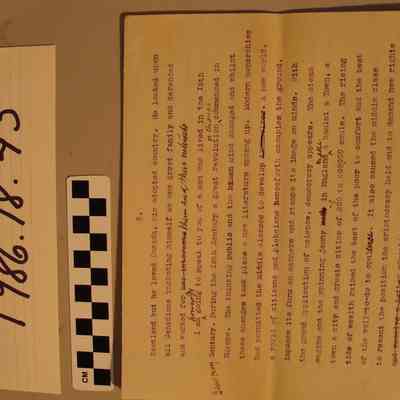 1986.18.43
CM
2.
Scotland but he loved Canada, his adopted country. He looked upon
all Canadians including himself as one great family and
and worked for
I am going to speak to you of a man who lived in the 19th
Century. During the 18th Century a great revolution commenced in
Europe. The thinking public and the human mind changed and whilst
these changes took place a new literature sprung up. Modern monarchies
had permitted the middle classes to develop a new world,
a world of citizens and plebeians henceforth occupies the ground,
imposes its form on manners and stamps its image on minds. With
the great application of science, democracy appears. The steam
engine and the spinning jenny in England a hamlet a Town, a
town a city and create cities of 250 to 500,000 souls. The rising
tide of wealth raised the best of the poor to comfort and the best
of the well-to-do to opulence. It also caused the middle class
to resent the position the aristocracy held and to demand new rights